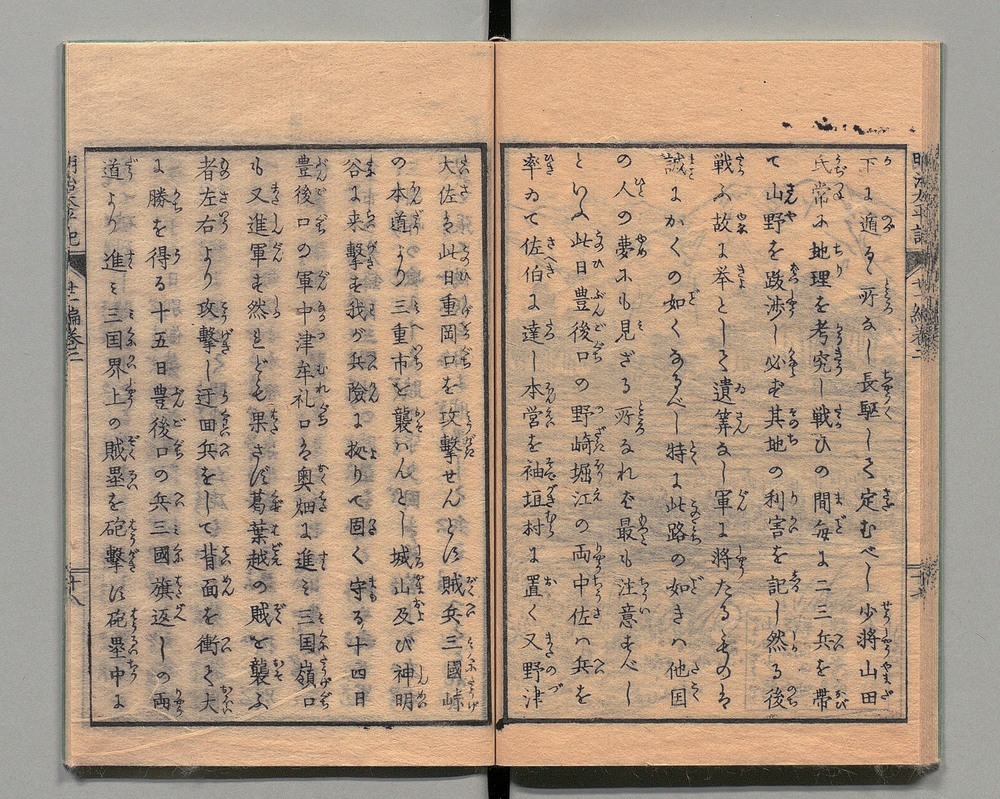 下に遁るゝ所なし長駆して定むべし少将山田
氏常に地理を考究し戦ひの間毎に二三兵を帯
て山野を跋渉し必ず其地の利害を記し然る後
戦ふ故に挙として遺筭なし軍に将たるものは
誠にかくの如くなるべし特に此路の如きハ他国
の人の夢にも見ざる所なれば最も注意すべし
といふ此日豊後口の野崎堀江の両中佐ハ兵を
率ゐて佐伯に達し本営を袖垣村に置く又野津
大佐は此日重岡口を攻撃せんとす賊兵三國峠
の本道より三重市を襲ハんとし城山及び神明
谷に来撃す我が兵險に拠りて固く守る十四日
豊後口の軍中津牟礼口は奥畑に進ミ三国嶺口
も又進軍す然れども果さず葛葉越の賊を襲ふ
者左右より攻撃し迂回兵をして背面を衝く大
に勝を得る十五日豊後口の兵三國旗返しの両
道より進ミ三国界上の賊塁を砲撃す砲塁中に
明治太平記
廿一編巻二